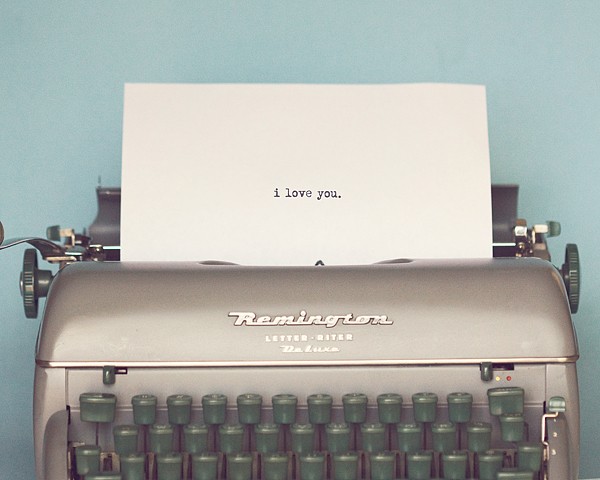 i love you.
Remington
LETTER-RITER
DeLuxe